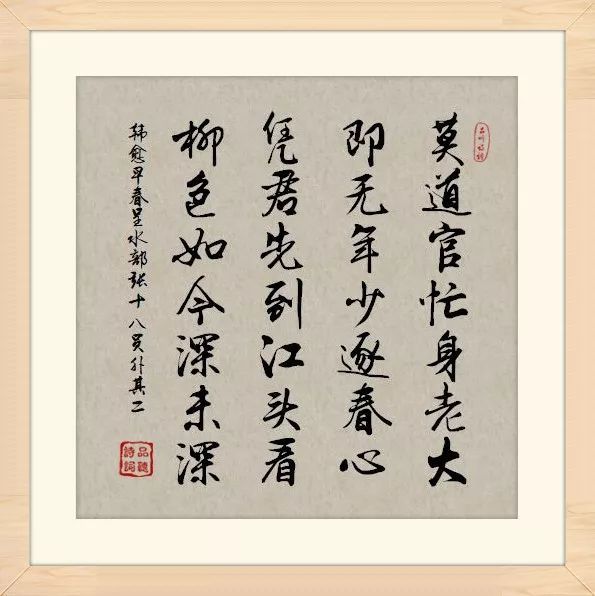 莫道官忙身老大
即无年少逐春心
凭君先到江头看
柳色如今深未深
韩愈早春呈水部张十八员外其二
品聽
詩詞